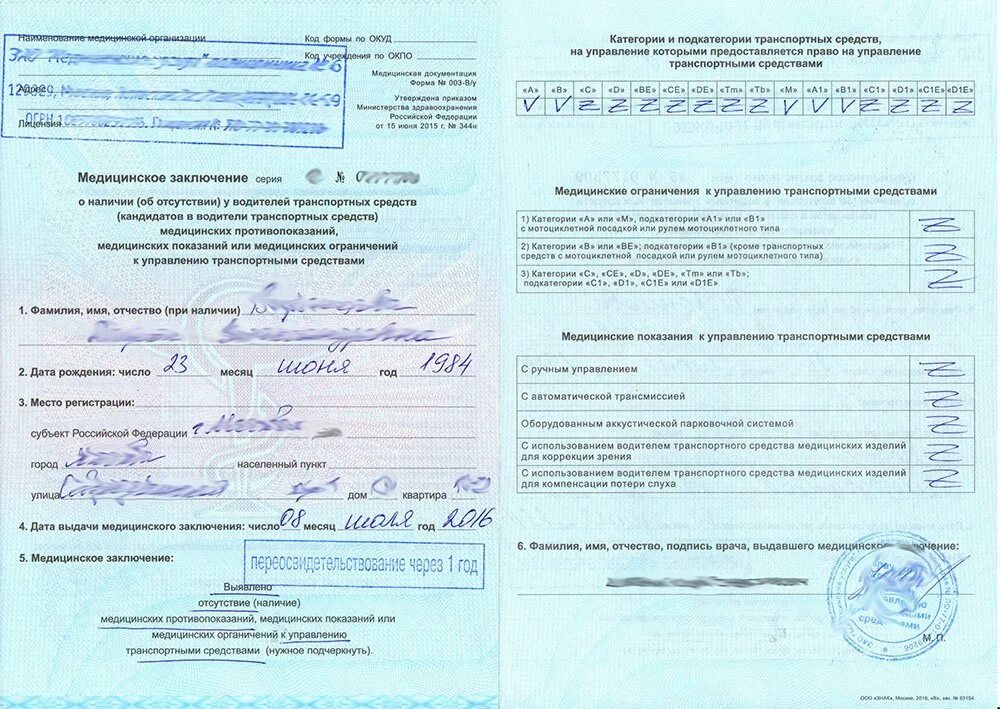 Наименование медицинской организации
Код формы по ОКУД
Код учреждения по ОКПО
Адрес
Лицензия
ОГРН
Медицинская документация
Форма № 003-В/у
Утверждена приказом
Министерства здравоохранения
Российской Федерации
от 15 июня 2015 г. № 344н
Медицинское заключение серия №
о наличии (об отсутствии) у водителей транспортных средств
(кандидатов в водители транспортных средств)
медицинских противопоказаний,
медицинских показаний или медицинских ограничений
к управлению транспортными средствами
1. Фамилия, имя, отчество (при наличии)
2. Дата рождения: число 23 месяц июня год 1984
3. Место регистрации:
субъект Российской Федерации г.
город
населенный пункт
улица дом квартира
4. Дата выдачи медицинского заключения: число 08 месяц июля год 2016
5. Медицинское заключение:
переосвидетельствование через 1 год
Выявлено
отсутствие (наличие)
медицинских противопоказаний, медицинских показаний или
медицинских органичений к управлению
транспортными средствами (нужное подчеркнуть).
Категории и подкатегории транспортных средств,
на управление которыми предоставляется право на управление
транспортными средствами
«A» «B» «C» «D» «BE» «CE» «DE» «Tm» «Tb» «M» «A1» «B1» «C1» «D1» «C1E» «D1E»
V V Z Z Z Z Z Z Z V V V Z Z Z Z
Медицинские ограничения к управлению транспортными средствами
1) Категории «А» или «М», подкатегории «А1» или «В1»
с мотоциклетной посадкой или рулем мотоциклетного типа
Z
2) Категории «В» или «ВЕ»; подкатегории «В1» (кроме транспортных
средств с мотоциклетной посадкой или рулем мотоциклетного типа)
Z
3) Категории «С», «СЕ», «D», «DE», «Tm» или «Tb»;
подкатегории «С1», «D1», «С1Е» или «D1E»
Z
Медицинские показания к управлению транспортными средствами
С ручным управлением Z
С автоматической трансмиссией Z
Оборудованным акустической парковочной системой Z
С использованием водителем транспортного средства медицинских изделий
для коррекции зрения
Z
С использованием водителем транспортного средства медицинских изделий
для компенсации потери слуха
Z
6. Фамилия, имя, отчество, подпись врача, выдавшего
М. П.
ООО «ЗНАК», Москва, 2016, «В», зак. № 53154.